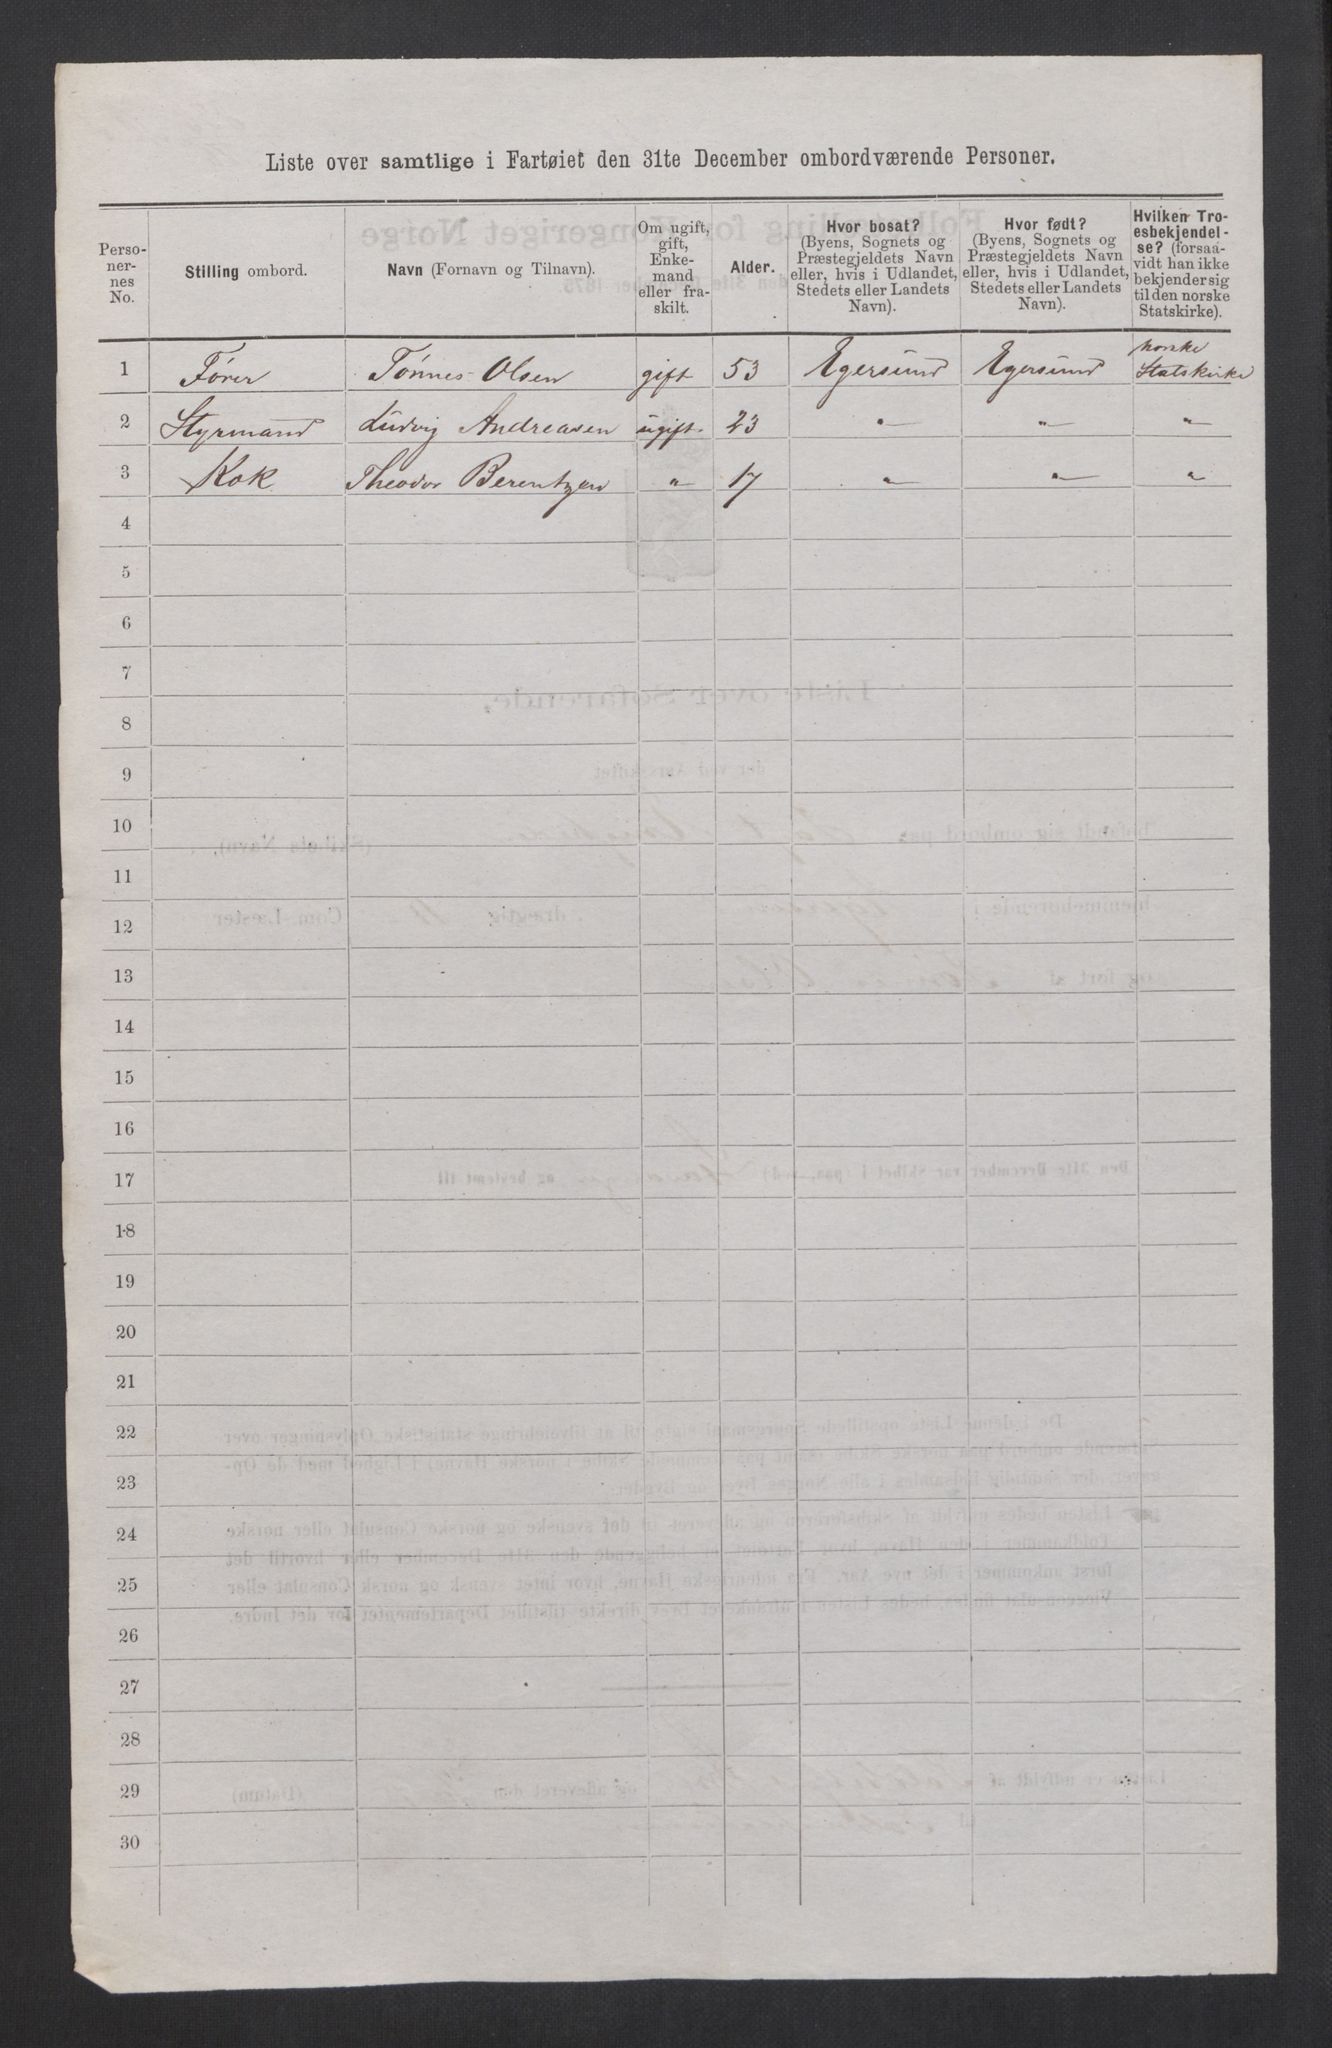 Liste over samtlige i Fartøiet den 31te December ombordværende Personer.
Perso-
ner-
nes
No.
Stilling ombord.
Navn (Fornavn og Tilnavn).
Om ugift,
gift,
Enke-
mand
eller fra-
skilt.
Alder.
Hvor bosat?
(Byens, Sognets og
Præstegjeldets Navn
eller, hvis i Udlandet,
Stedets eller Landets
Navn).
Hvor født?
(Byens, Sognets og
Præstegjeldets Navn
eller, hvis i Udlandet,
Stedets eller Landets
Navn).
Hvilken Tro-
esbekjendel-
se? (forsaa-
vidt han ikke
bekjender sig
til den norske
Statskirke).
1 Fører Tønnes Olsen gift 53 Egersund Egersund norske
Statskirke
2 Styrmand Ludvig Andreasen ugift 23 " " "
3 Kok Theodor Berentzen " 17 " " "
4
5
6
7
8
9
10
11
12
13
14
15
16
17
18
19
20
21
22
23
24
25
26
27
28
29
30